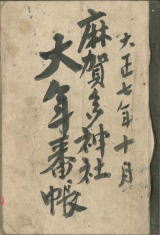 大正七年十月
麻賀多神社
大年番帳